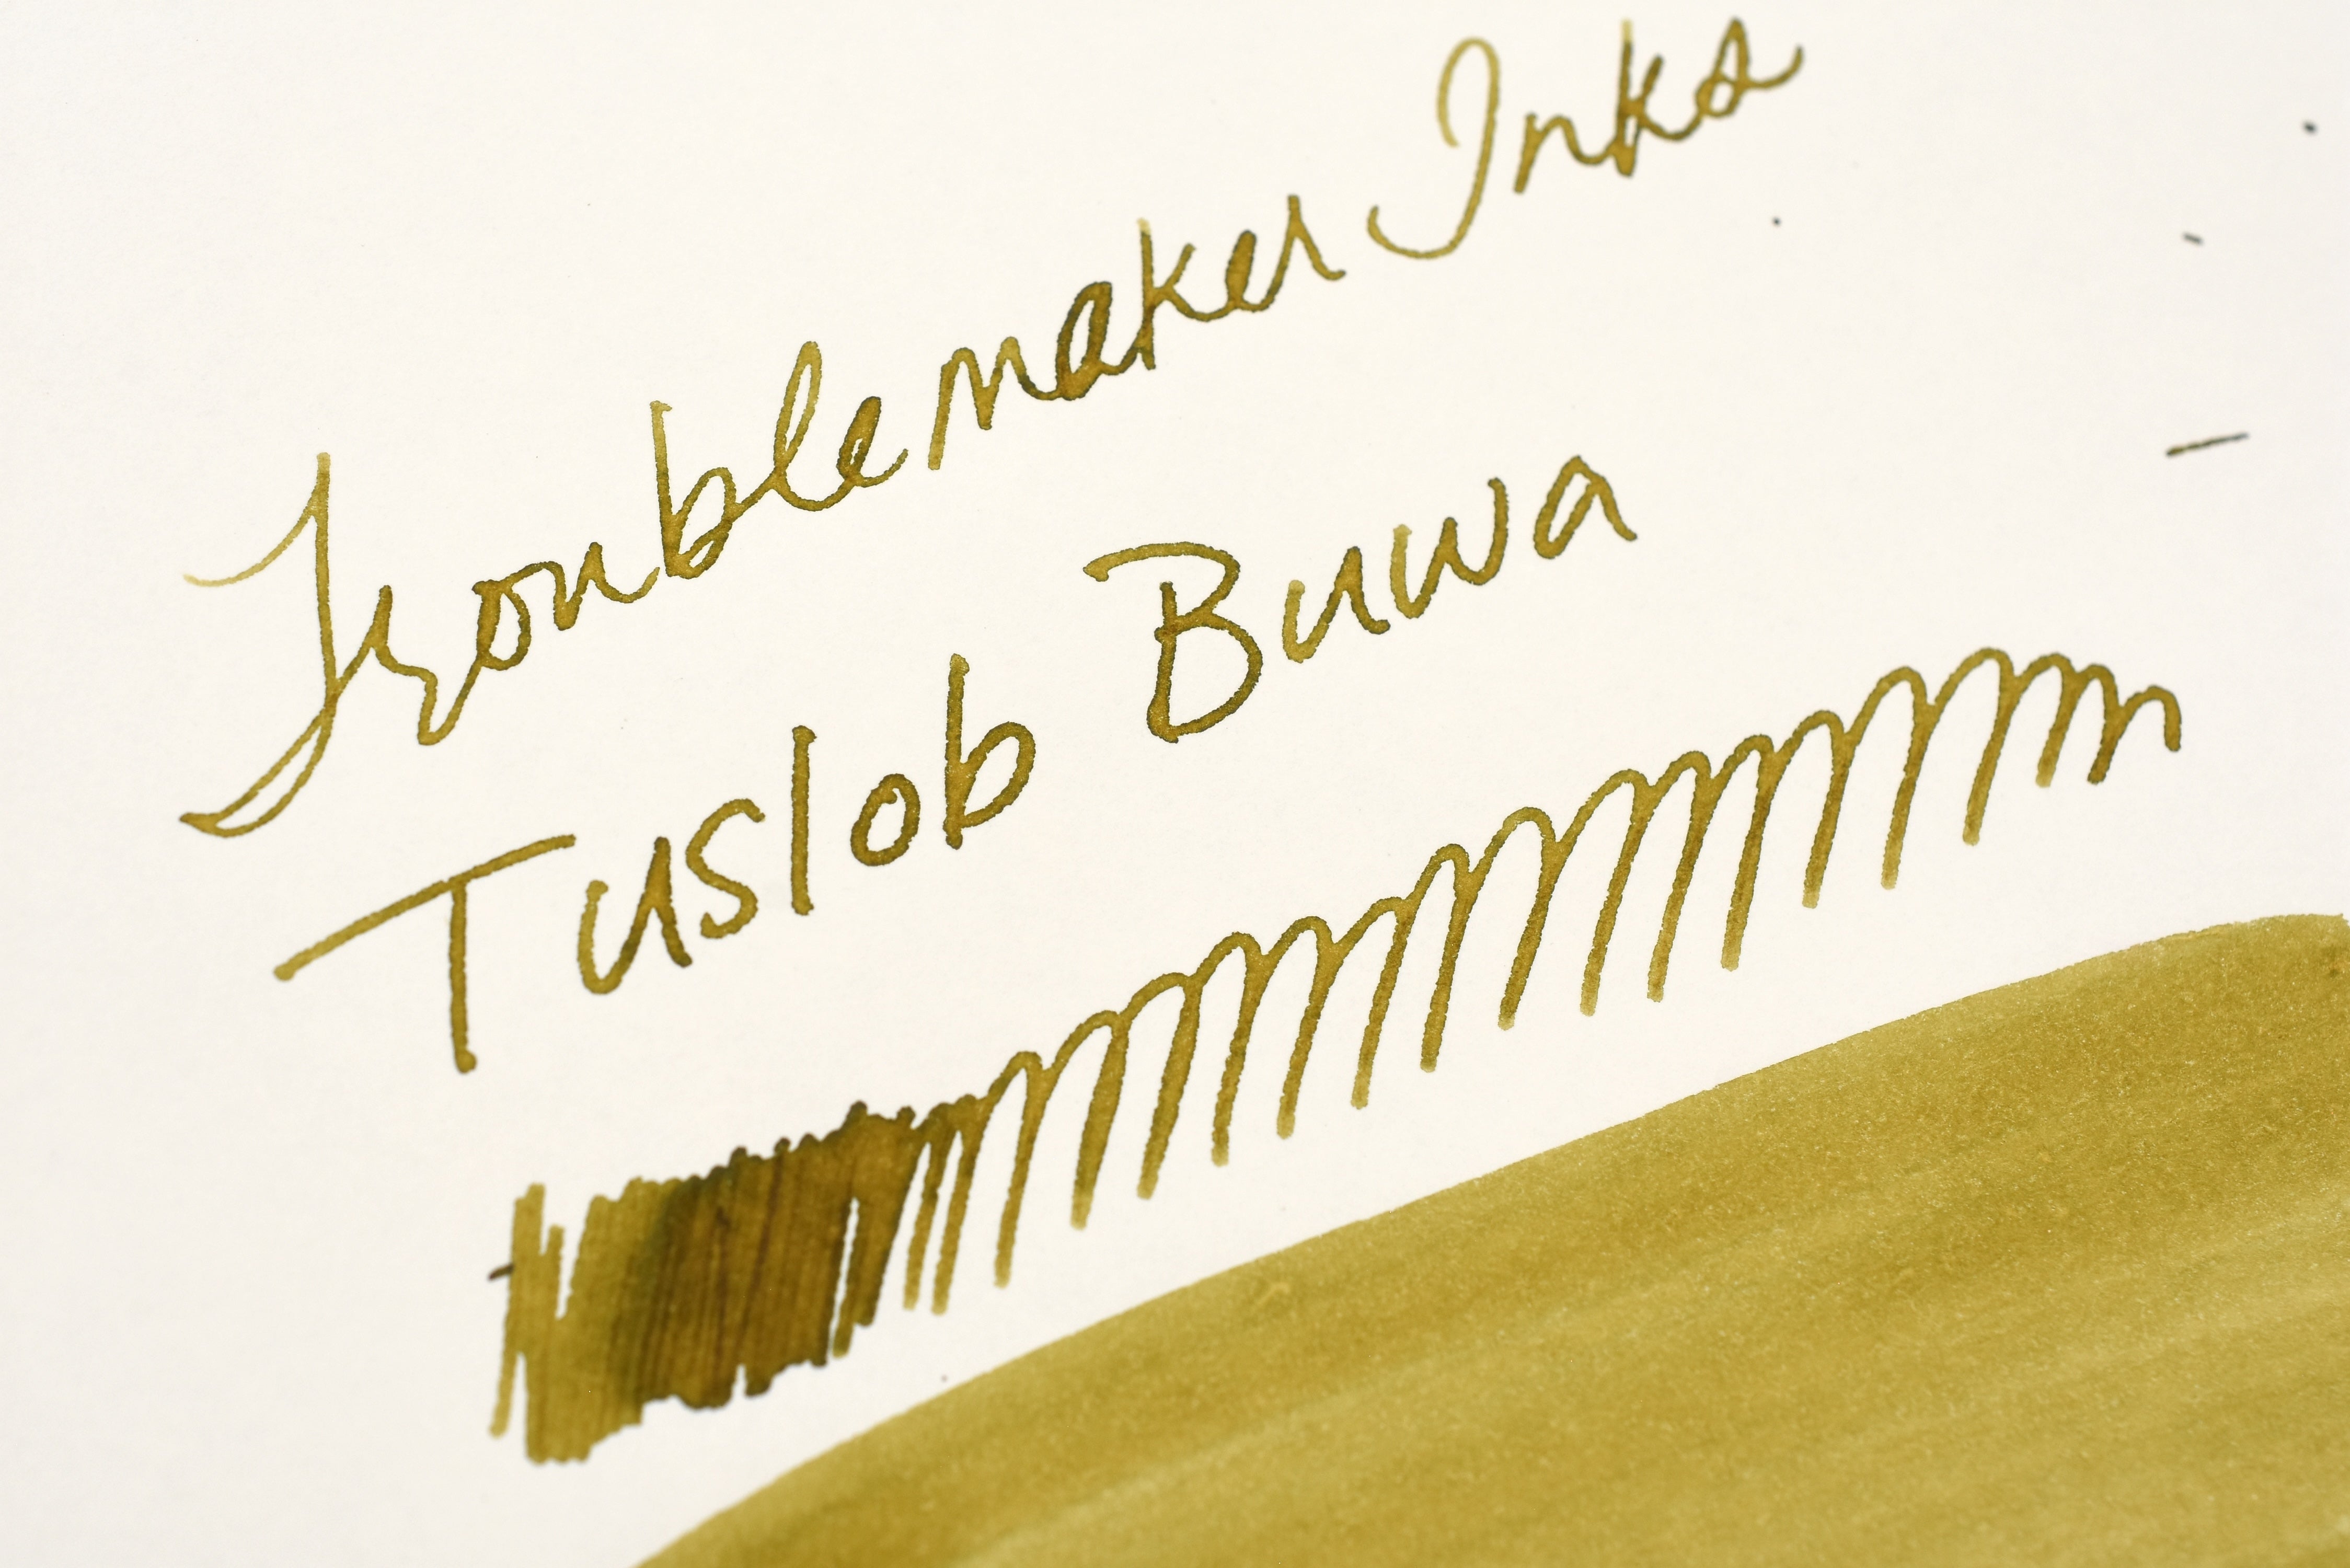 Troublemaker Inks
Tuslob Buwa